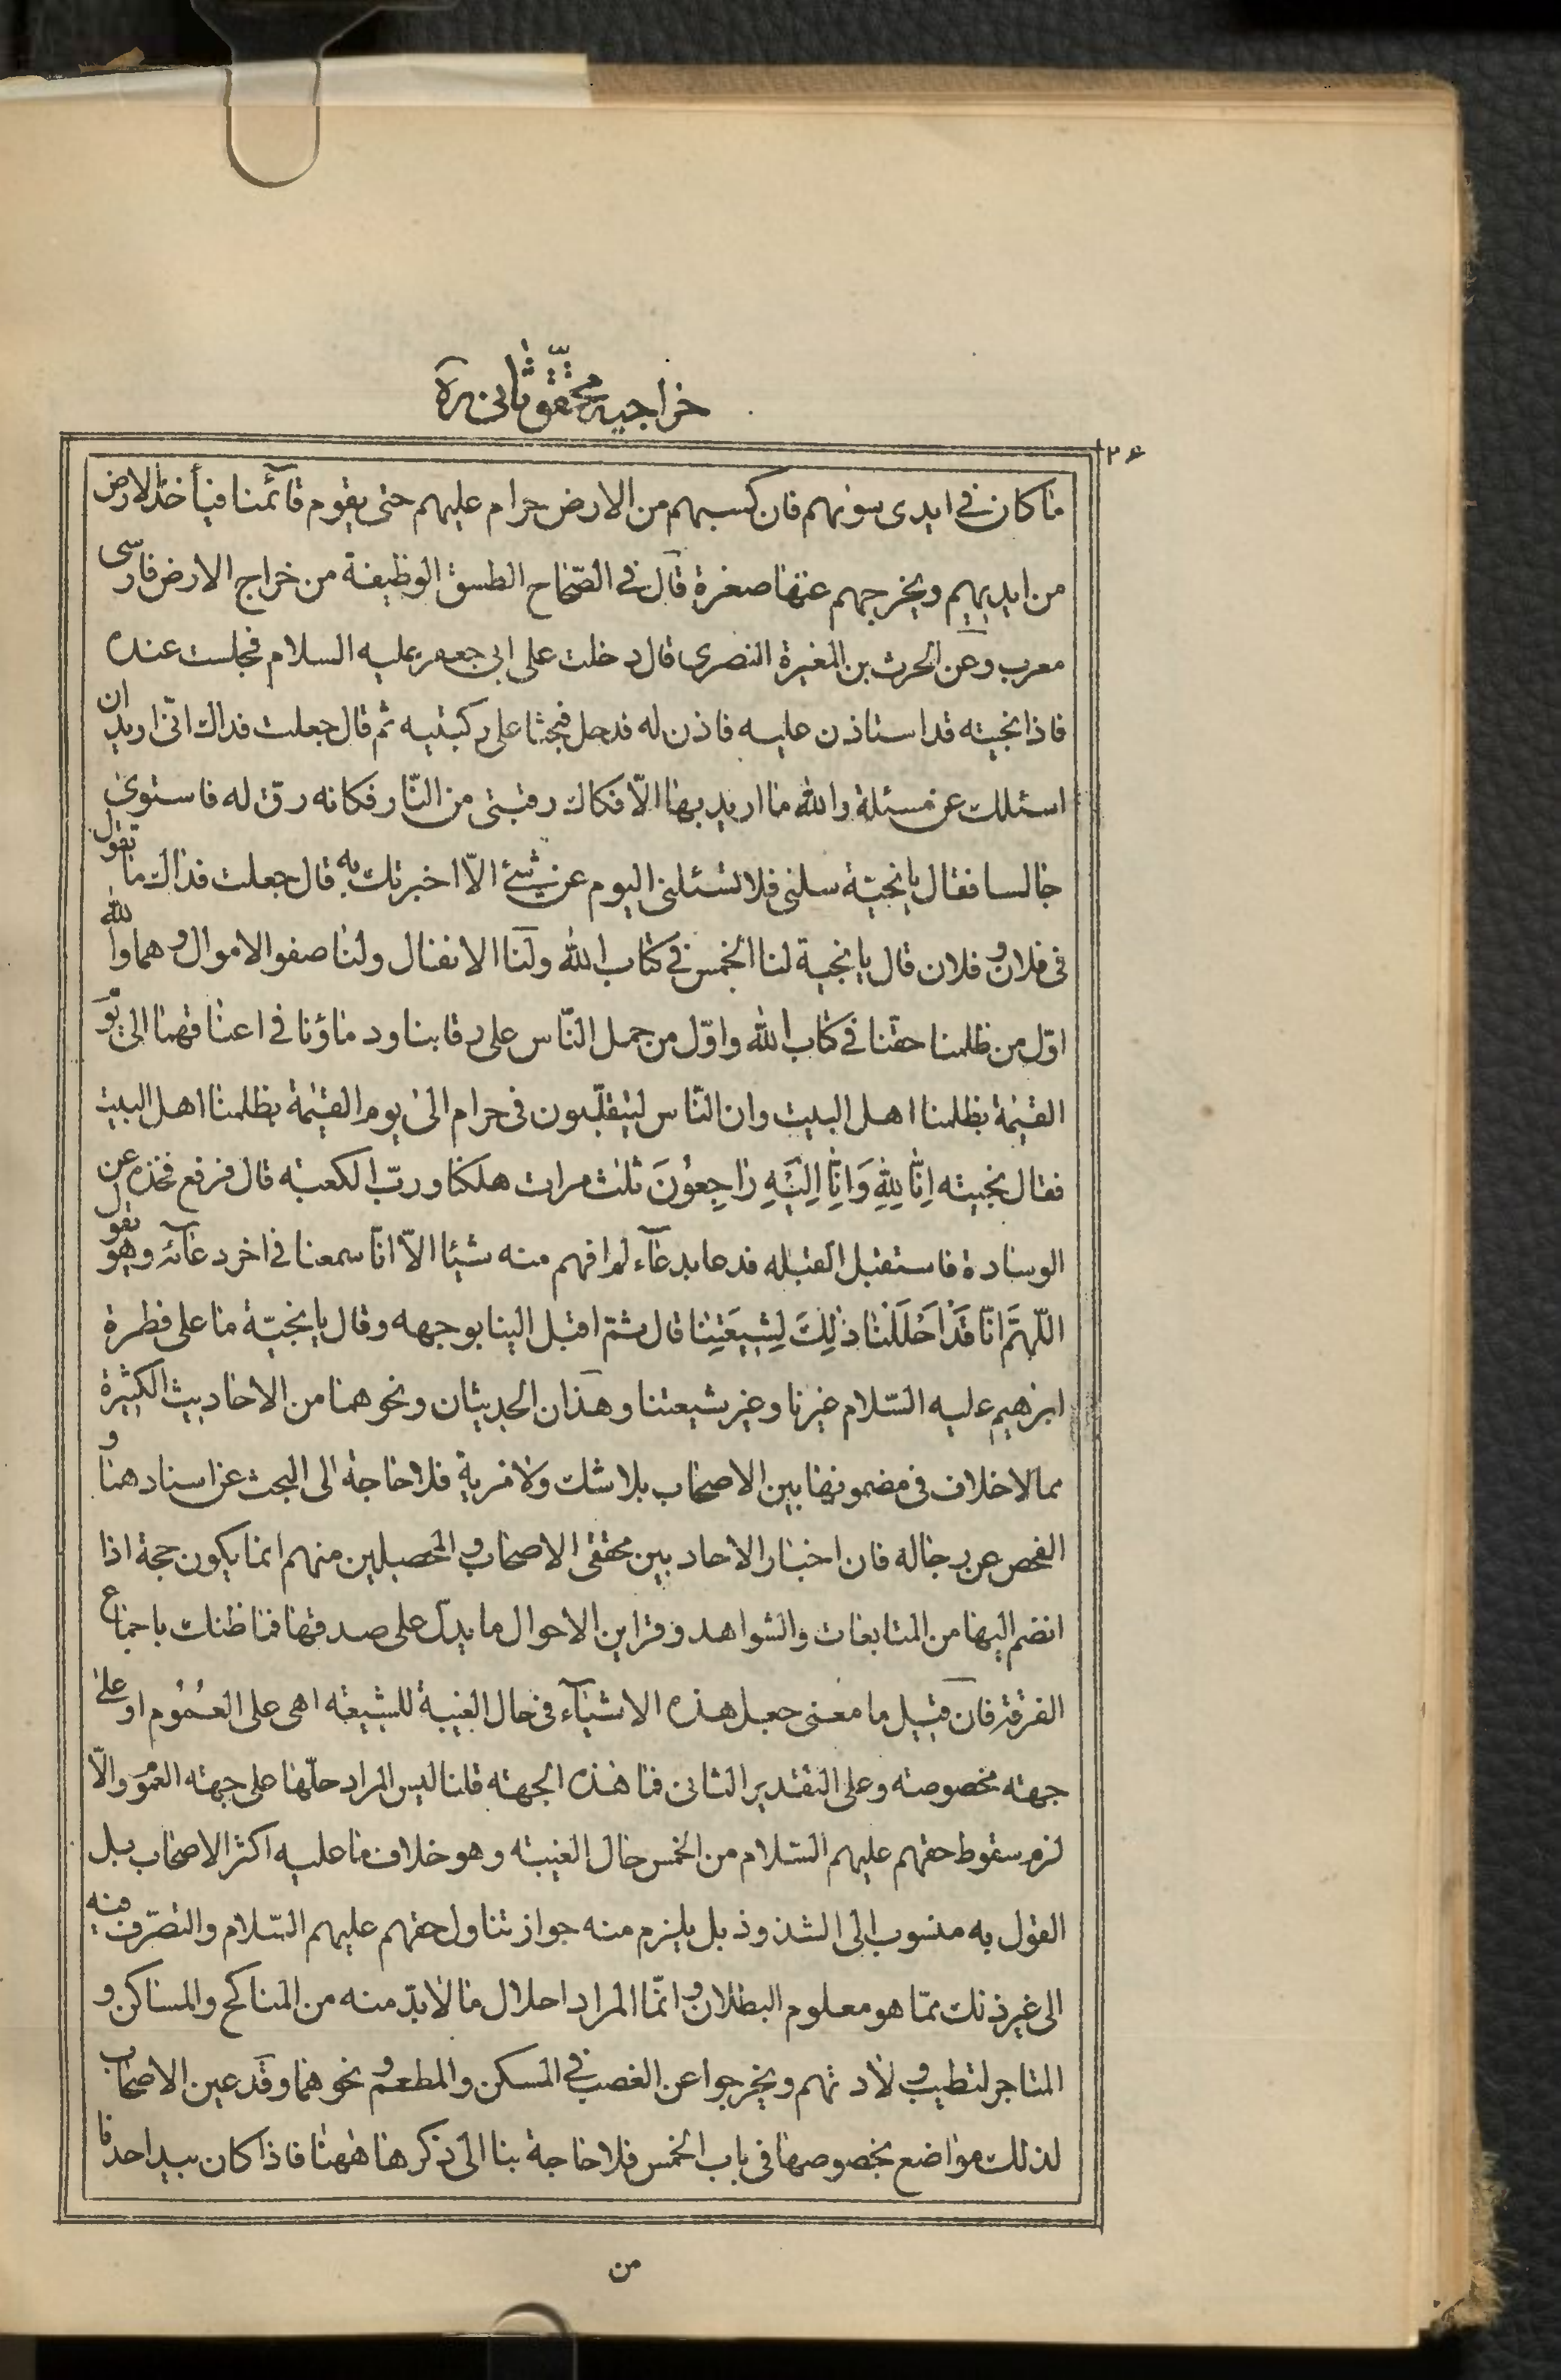 خراجیه محقق ثانی ره
۲۶
ما كان فى ايدى سوىهم فان كسبهم من الارض حرام عليهم حتى يقوم قآئمنا فيأخذ الارض
من ايديهم ويخرجهم عنها صغرة قال فى الصّحاح الطسق الوظيفة من خراج الارض فارسى
معرب وعن الحرث بن المغيرة النصرى قال دخلت على ابى جعفر عليه السلام فجلست عنده
فاذا نجيته قد استاذن عليه فاذن له فدخل فجثا على ركبتيه ثم قال جعلت فداك انّى اريد ان
اسئلك عن مسئلة والله ما اريد بها الّا فكاك رقبتى من النّار فكانه رق له فاستوى
جالسا فقال يا نجيّة سلنى فلا تسئلنى اليوم عن شئ الّا اخبرتك به قال جعلت فداك ما تقول
فى فلان و فلان قال يا نجية لنا الخمس فى كتاب الله ولنا الانفال ولنا صفو الاموال و هما والله
اوّل من ظلمنا حقنا فى كتاب الله واوّل من حمل النّاس على رقابنا ودماؤنا فى اعناقهما الى يَو
القيٰمة بظلمنا اهل البيت وان النّاس ليتقلّبون فى حرام الى يوم القيٰمة بظلمنا اهل البيت
فقال نجيته اِنّا لِلّهِ وَاِنّا اِلَيْهِ رَاجِعُونَ ثلث مرات هلكنا وربّ الكعبه قال فرفع فخذه عن
الوسادة فاستقبل القبله فدعا بدعآء لم افهم منه شيئا الّا انّا سمعنا فى اخر دعآئه وهو يقول
اللّهمَّ انّا قَدْ اَحْلَلْنا ذٰلِكَ لِشيعَتِنا قال ثمّ اقبل الينا بوجهه وقال يا نجيّة ما على فطرة
ابرهيم عليه السّلام غيرنا وغير شيعتنا وهذان الحديثان ونحوهما من الاحاديث الكثيرة
مما لا خلاف فى مضمونها بين الاصحاب بلا شك ولا مرية فلا حاجة الى البحث عن اسنادهما و
الفحص عن رجاله فان اخبار الاحاد بين محققى الاصحاب و المحصلين منهم انما يكون حجة اذا
انضم اليها من المتابعات والشواهد وقراين الاحوال ما يدلّ على صدقها فما ظنك باجماع
الفرقة فان قيل ما معنى جعل هذه الاشيآء فى حال الغيبة للشيعته اهى على العُمُوم او على
جهته مخصوصته وعلى التقدير الثانى فما هذه الجهته قلنا ليس المراد حلّها على جهته العمَو والّا
لزم سقوط حقهم عليهم السّلام من الخمس حال الغيبته وهو خلاف ما عليه اكثر الاصحاب بل
القول به منسوب الى الشذوذ بل يلزم منه جواز تناول حقهم عليهم السّلام والتصرّف فيه
الى غير ذلك ممّا هو معلوم البطلان و انّما المراد احلال ما لا بدّ منه من المناكح والمساكن و
المتاجر لتطيب ولادتهم ويخرجوا عن الغصب فى المسكن والمطعم و نحوهما وقد عين الاصحاب
لذلك مواضع بخصوصها فى باب الخمس فلا حاجة بنا الى ذكرها ههنا فاذا كان بيد احد ما
من